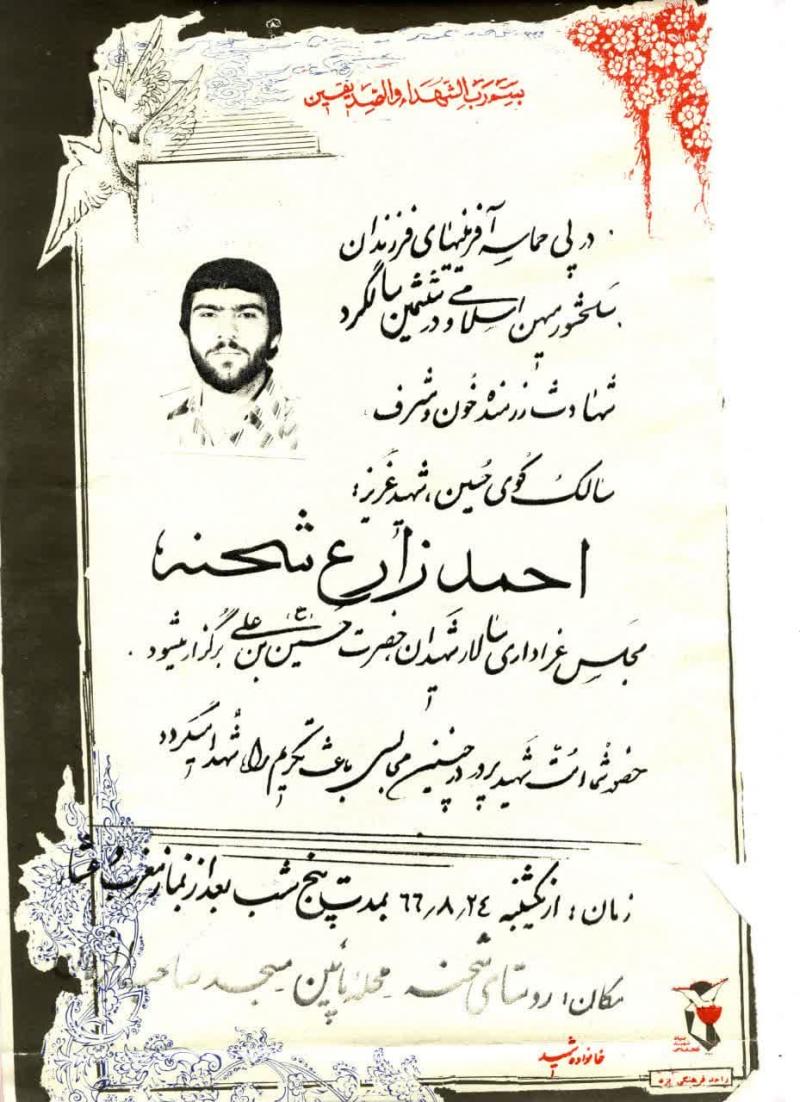 بسم رب الشهداء والصدیقین
در پی حماسه آفرینیهای فرزندان
سلحشور میهن اسلامی و در ششمین سالگرد
شهادت رزمنده خون و شرف
سالک کوی حسین، شهید عزیز:
احمد زارع شحنه
مجلس عزاداری سالار شهیدان حضرت حسین بن علی (ع) برگزار میشود.
حضور شما امت شهید پرور در چنین مجالسی باعث تکریم راه شهدا میگردد
زمان: از یکشنبه ۲۴ر۸ر۶۶ بمدت پنج شب بعد از نماز مغرب و عشاء
مکان: روستای شحنه محله پائین مسجد صاحب
خانواده شهید
بنیاد شهید
واحد فرهنگی یزد